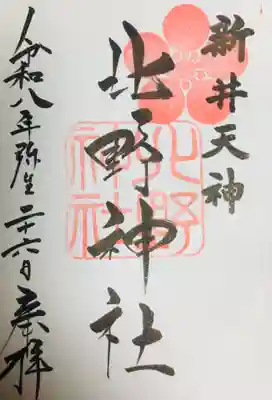 新井天神
北野神社
北野神社
令和八年弥生二十六日 奉拝